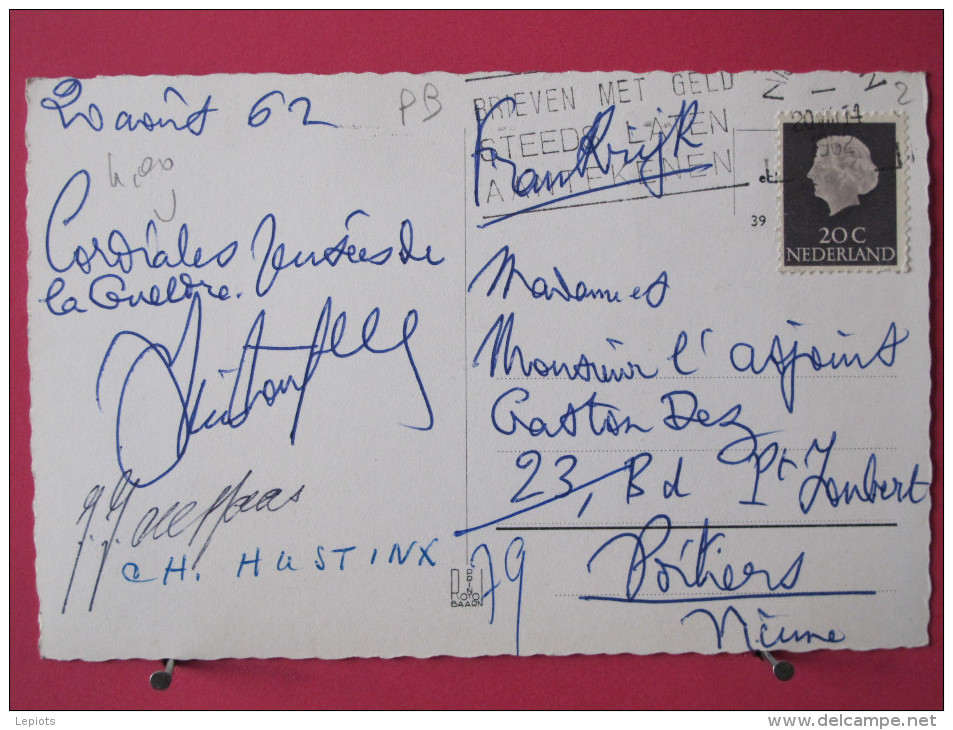 20 août 62
PB
Cordiales pensées de
la Gueldre.
CH. HUSTINX
BRIEVEN MET GELD
STEEDS LATEN
AANTEKENEN
Frankrijk
2
39
20 C
NEDERLAND
Madame et
Monsieur l'adjoint
Gaston Dez
23, Bd Pt Joubert
79
Poitiers
Vienne
BAARN
Lepiots
www.delcampe.net